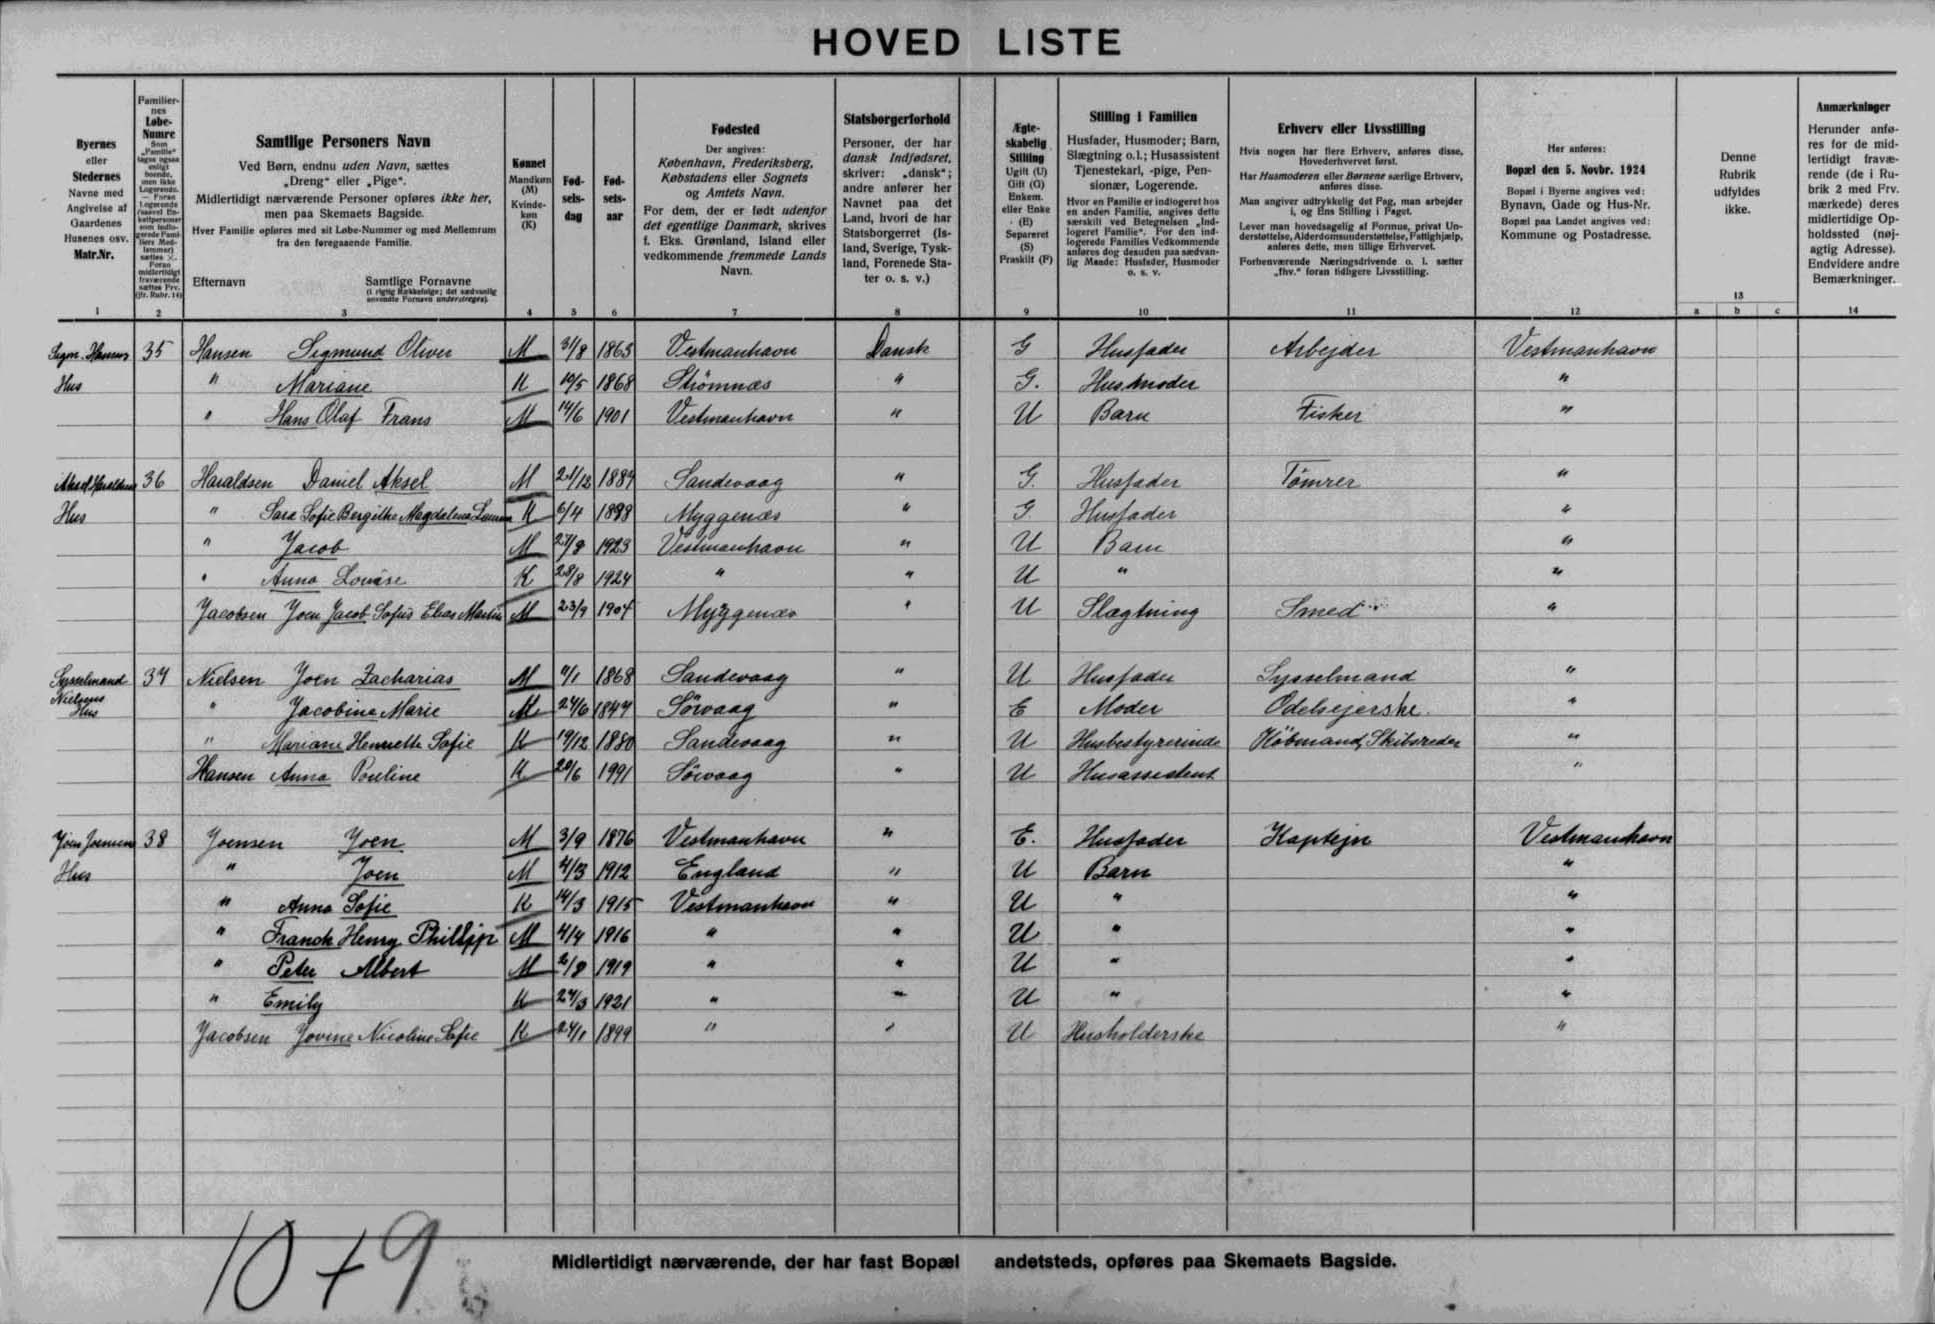 HOVED LISTE
Byernes
eller
Stedernes
Navne med
Angivelse af
Gaardenes
Husenes osv.
Matr.Nr.
1
Familier-
nes
Løbe-
Numre
Som
„Familie“
tages ogsaa
enligt
boende,
men ikke
Logerende.
— Foran
Logerende
(saavel En-
keltpersoner
som indlo-
gerede Fami-
liers Med-
lemmer)
sættes ×.
Foran
midlertidigt
fraværende
sættes Frv.
(jfr. Rubr. 14)
2
Samtlige Personers Navn
Ved Børn, endnu uden Navn, sættes
„Dreng“ eller „Pige“.
Midlertidigt nærværende Personer opføres ikke her,
men paa Skemaets Bagside.
Hver Familie opføres med sit Løbe-Nummer og med Mellemrum
fra den foregaaende Familie.
Efternavn Samtlige Fornavne
(i rigtig Rækkefølge; det sædvanlig
anvendte Fornavn understreges).
3
Kønnet
Mandkøn
(M)
Kvinde-
køn
(K)
4
Fød-
sels-
dag
5
Fød-
sels-
aar
6
Fødested
Der angives:
København, Frederiksberg,
Købstadens eller Sognets
og Amtets Navn.
For dem, der er født udenfor
det egentlige Danmark, skrives
f. Eks. Grønland, Island eller
vedkommende fremmede Lands
Navn.
7
Statsborgerforhold
Personer, der har
dansk Indfødsret,
skriver: „dansk“;
andre anfører her
Navnet paa det
Land, hvori de har
Statsborgerret (Is-
land, Sverige, Tysk-
land, Forenede Sta-
ter o. s. v.)
8
Ægte-
skabelig
Stilling
Ugift (U)
Gift (G)
Enkem.
eller Enke
(E)
Separeret
(S)
Fraskilt (F)
9
Stilling i Familien
Husfader, Husmoder; Barn,
Slægtning o.l.; Husassistent
Tjenestekarl, -pige, Pen-
sionær, Logerende.
Hvor en Familie er indlogeret hos
en anden Familie, angives dette
særskilt ved Betegnelsen „Ind-
logeret Familie“. For den ind-
logerede Families Vedkommende
anføres dog desuden paa sædvan-
lig Maade: Husfader, Husmoder
o. s. v.
10
Erhverv eller Livsstilling
Hvis nogen har flere Erhverv, anføres disse,
Hovederhvervet først.
Har Husmoderen eller Børnene særlige Erhverv,
anføres disse.
Man angiver udtrykkelig det Fag, man arbejder
i, og Ens Stilling i Faget.
Lever man hovedsagelig af Formue, privat Un-
derstøttelse, Alderdomsunderstøttelse, Fattighjælp,
anføres dette, men tillige Erhvervet.
Forhenværende Næringsdrivende o. l. sætter
„fhv.“ foran tidligere Livsstilling.
11
Her anføres:
Bopæl den 5. Novbr. 1924
Bopæl i Byerne angives ved:
Bynavn, Gade og Hus-Nr.
Bopæl paa Landet angives ved:
Kommune og Postadresse.
12
Denne
Rubrik
udfyldes
ikke.
13
a b c
Anmærkninger
Herunder anfø-
res for de mid-
lertidigt fravæ-
rende (de i Ru-
brik 2 med Frv.
mærkede) deres
midlertidige Op-
holdssted (nøj-
agtig Adresse).
Endvidere andre
Bemærkninger.
14
Sigm. Hansens 35 Hansen Sigmund Oliver M 31/8 1863 Vestmanhavn Dansk G Husfader Arbejder Vestmanhavn
Hus " Mariane K 10/5 1868 Strömnæs " G. Husmoder "
" Hans Olaf Frans M 14/6 1901 Vestmanhavn " U Barn Fisker "
Aksel Haraldsens 36 Haraldsen Daniel Aksel M 21/12 1889 Sandevaag " G. Husfader Tömrer "
Hus " Sara Sofie Bergithe Magdalena K 6/4 1898 Myggenæs " G Husfader "
" Jacob M 27/8 1923 Vestmanhavn " U Barn "
" Anna Lovise K 28/8 1924 " " U " "
Jacobsen Joen Jacob Sofus Elias Martin M 23/9 1904 Myggenæs " U Slægtning Smed "
Sysselmand 37 Nielsen Joen Zacharias M 7/1 1868 Sandevaag " U Husfader Sysselmand "
Nielsens
Hus " Jacobine Marie M 24/6 1844 Sörvaag " E Moder Odelsejerske. "
" Mariane Henriette Sofie K 19/12 1880 Sandevaag " U Husbestyrerinde Köbmand, Skibsreder "
Hansen Anna Pouline K 20/6 1991 Sörvaag " U Husassistent "
Joen Joensens 38 Joensen Joen M 3/9 1876 Vestmanhavn " E. Husfader Kaptejn Vestmanhavn
Hus " Joen M 4/3 1912 England " U Barn "
" Anna Sofie K 14/3 1915 Vestmanhavn " U " "
" Franck Henry Phillip M 4/4 1916 " " U " "
" Peter Albert M 2/8 1919 " " U " "
" Emily K 24/3 1921 " " U " "
Jacobsen Jovine Nicoline Sofie K 24/1 1899 " " U Husholderske "
10+9
Midlertidigt nærværende, der har fast Bopæl andetsteds, opføres paa Skemaets Bagside.